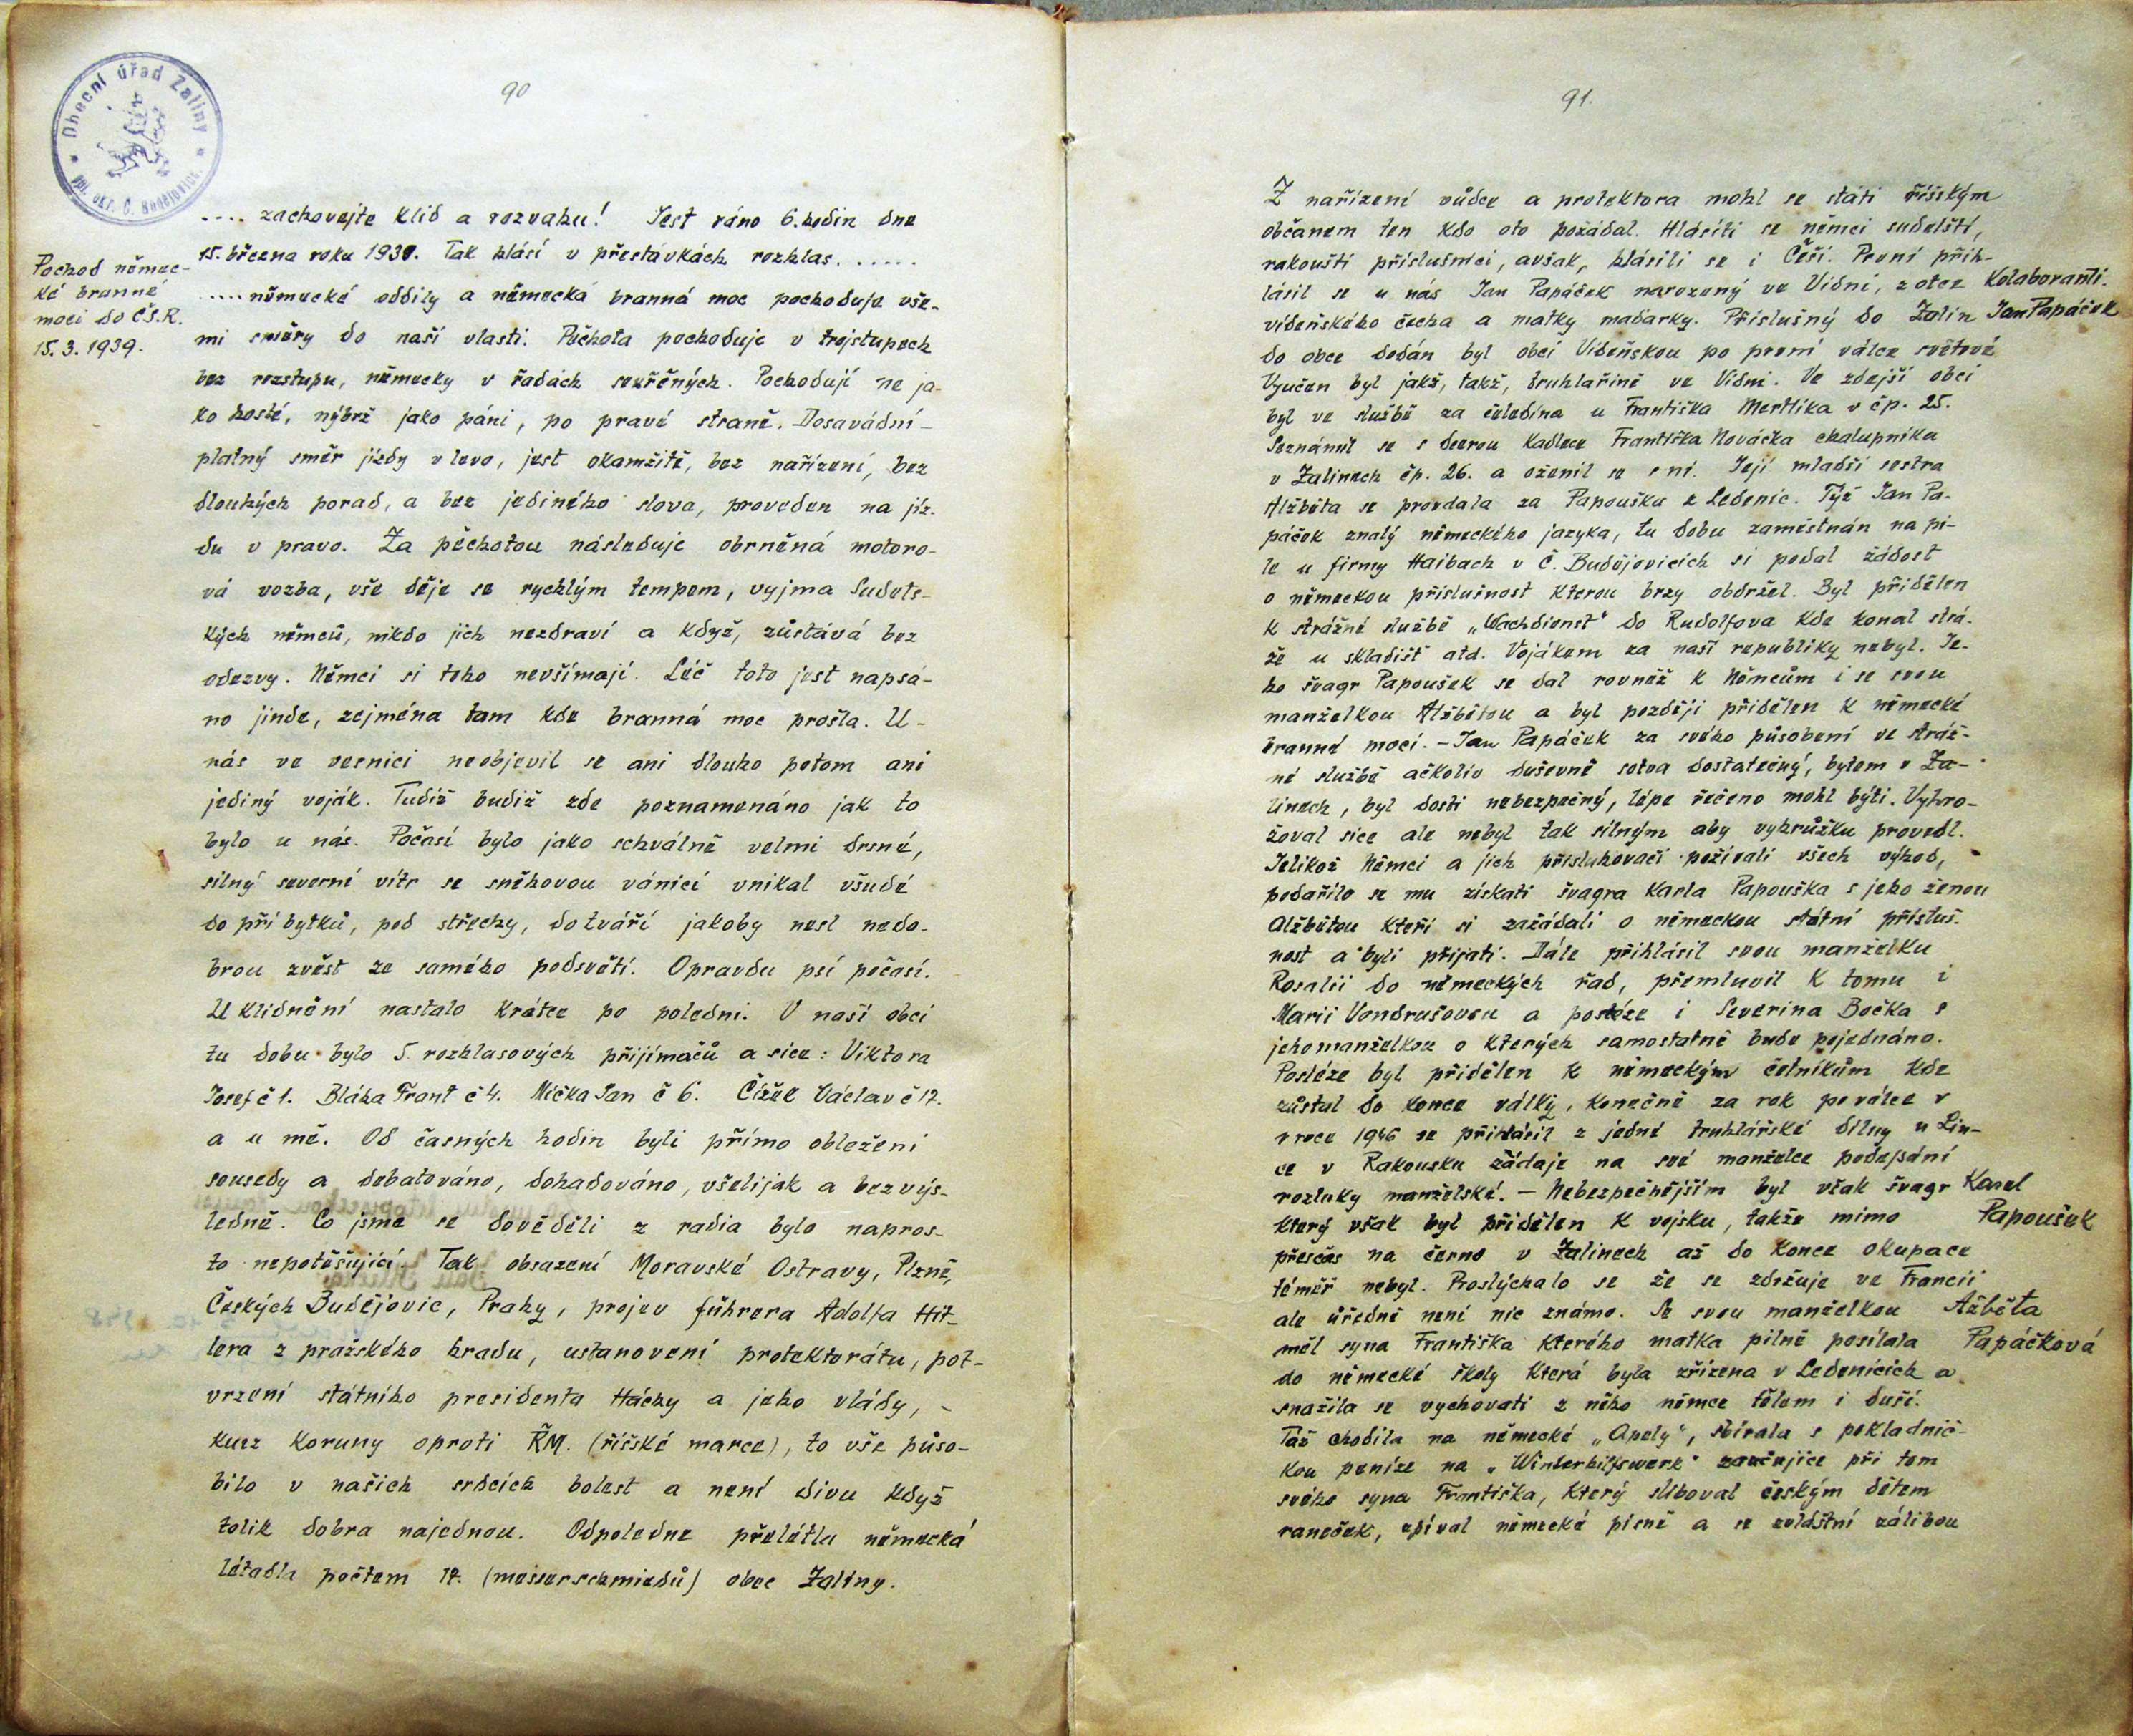 90
Obecní úřad Žaliny
pol. okr. Č. Budějovice
.... zachovejte klid a rozvahu! Jest ráno 6. hodin dne
15. března roku 1939. Tak hlásí v přestávkách rozhlas. .....
Pochod němec-
ké branné
moci do ČS.R.
15. 3. 1939.
.... německé oddíly a německá branná moc pochoduje vše-
mi směry do naší vlasti. Pěchota pochoduje v trojstupech
bez rozstupu, německy v řadách sevřených. Pochodují ne ja-
ko hosté, nýbrž jako páni, po pravé straně. Dosavádní-
platný směr jízdy v levo, jest okamžitě, bez nařízení, bez
dlouhých porad, a bez jediného slova, proveden na jíz-
du v pravo. Za pěchotou následuje obrněná motoro-
vá vozba, vše děje se rychlým tempem, vyjma Sudets-
kých němců, nikdo jich nezdraví a když, zůstává bez
odezvy. Němci si toho nevšímají. Léč toto jest napsá-
no jinde, zejména tam kde branná moc prošla. U-
nás ve vesnici neobjevil se ani dlouho potom ani
jediný voják. Tudiž budiž zde poznamenáno jak to
bylo u nás. Počasí bylo jako schválně velmi drsné,
silný severní vítr se sněhovou vánicí vnikal všudé
do příbytků, pod střechy, do tváří jakoby nesl nedo-
brou zvěst ze samého podsvětí. Opravdu psí počasí.
Uklidnění nastalo krátce po poledni. V naší obci
tu dobu bylo 5. rozhlasových přijímačů a sice: Viktora
Josef č 1. Bláha Frant č 4. Mička Jan č 6. Čížek Václav č 17.
a u mě. Od časných hodin byli přímo obleženi
sousedy a debatováno, dohadováno, všelijak a bezvýs-
ledně. Co jsme se dověděli z radia bylo napros-
to nepotěšující. Tak obsazení Moravské Ostravy, Plzně,
Českých Budějovic, Prahy, projev führera Adolfa Hit-
lera z pražského hradu, ustanovení protektorátu, pot-
vrzení státního presidenta Háchy a jeho vlády, -
kurz koruny oproti ŘM. (říšské marce), to vše půso-
bilo v našich srdcích bolest a není divu když
tolik dobra najednou. Odpoledne přelétla německá
létadla počtem 17. (messerschmiedů) obec Žaliny.
91.
Z nařízení vůdce a protektora mohl se státi říšským
občanem ten kdo oto požádal. Hlásíti se němci sudetští,
rakouští příslušníci, avšak, hlásili se i Češi. První přih-
lásil se u nás Jan Papáček narozený ve Vídni, z otce
Kolaboranti.
Jan Papáček
vídeňského čecha a matky maďarky. Příslušný do Žalin
do obce dodán byl obcí Vídeňskou po první válce světové.
Vyučen byl jakž, takž, truhlařině ve Vídni. Ve zdejší obci
byl ve službě za čeledína u Františka Mertlíka v čp. 25.
Seznámil se s dcerou Kadlece Františka Nováčka chalupníka
v Žalinech čp. 26. a oženil se s ní. Její mladší sestra
Alžběta se provdala za Papouška z Ledenic. Týž Jan Pa-
páček znalý německého jazyka, tu dobu zaměstnán na pi-
le u firmy Haibach v Č. Budějovicích si podal žádost
o německou příslušnost kterou brzy obdržel. Byl přidělen
k strážné službě „Wachdienst" do Rudolfova kde konal strá-
že u skladišť atd. Vojákem za naší republiky nebyl. Je-
ho švagr Papoušek se dal rovněž k Němcům i se svou
manželkou Alžbětou a byl později přidělen k německé
branné moci. - Jan Papáček za svého působení ve stráž-
né službě ačkoliv duševně sotva dostatečný, bytem v Ža-
linech, byl dosti nebezpečný, lépe řečeno mohl býti. Vyhro-
žoval sice ale nebyl tak silným aby vyhrůžku provedl.
Jelikož Němci a jich přisluhovači požívali všech výhod,
podařilo se mu získati švagra Karla Papouška s jeho ženou
Alžbětou kteří si zažádali o německou státní přísluš-
nost a byli přijati. Dále přihlásil svou manželku
Rosalii do německých řad, přemluvil k tomu i
Marii Vondrušovou a posléze i Severina Bočka s
jehomanželkou o kterých samostatně bude pojednáno.
Posléze byl přidělen k německým četníkům kde
zůstal do konce války, konečně za rok po válce v
v roce 1946 se přihlásil z jedné truhlářské dílny u Lin-
ce v Rakousku žádaje na své manželce podepsání
rozluky manželské. - Nebezpečnějším byl však švagr
Karel
Papoušek
který však byl přidělen k vojsku, takže mimo
přesčas na černo v Žalinech až do konce okupace
téměř nebyl. Proslýchalo se že se zdržuje ve Francii
ale úředně není nic známo. Se svou manželkou
Ažběta
Papáčková
měl syna Františka kterého matka pilně posílala
do německé školy která byla zřízena v Ledenicích a
snažila se vychovati z něho němce tělem i duší.
Táž chodila na německé „Apely", sbírala s pokladnič-
kou peníze na „Winterhilfswerk" zaučujíce při tom
svého syna Františka, který sliboval českým dětem
raneček, zpíval německé písně a se zvláštní zálibou